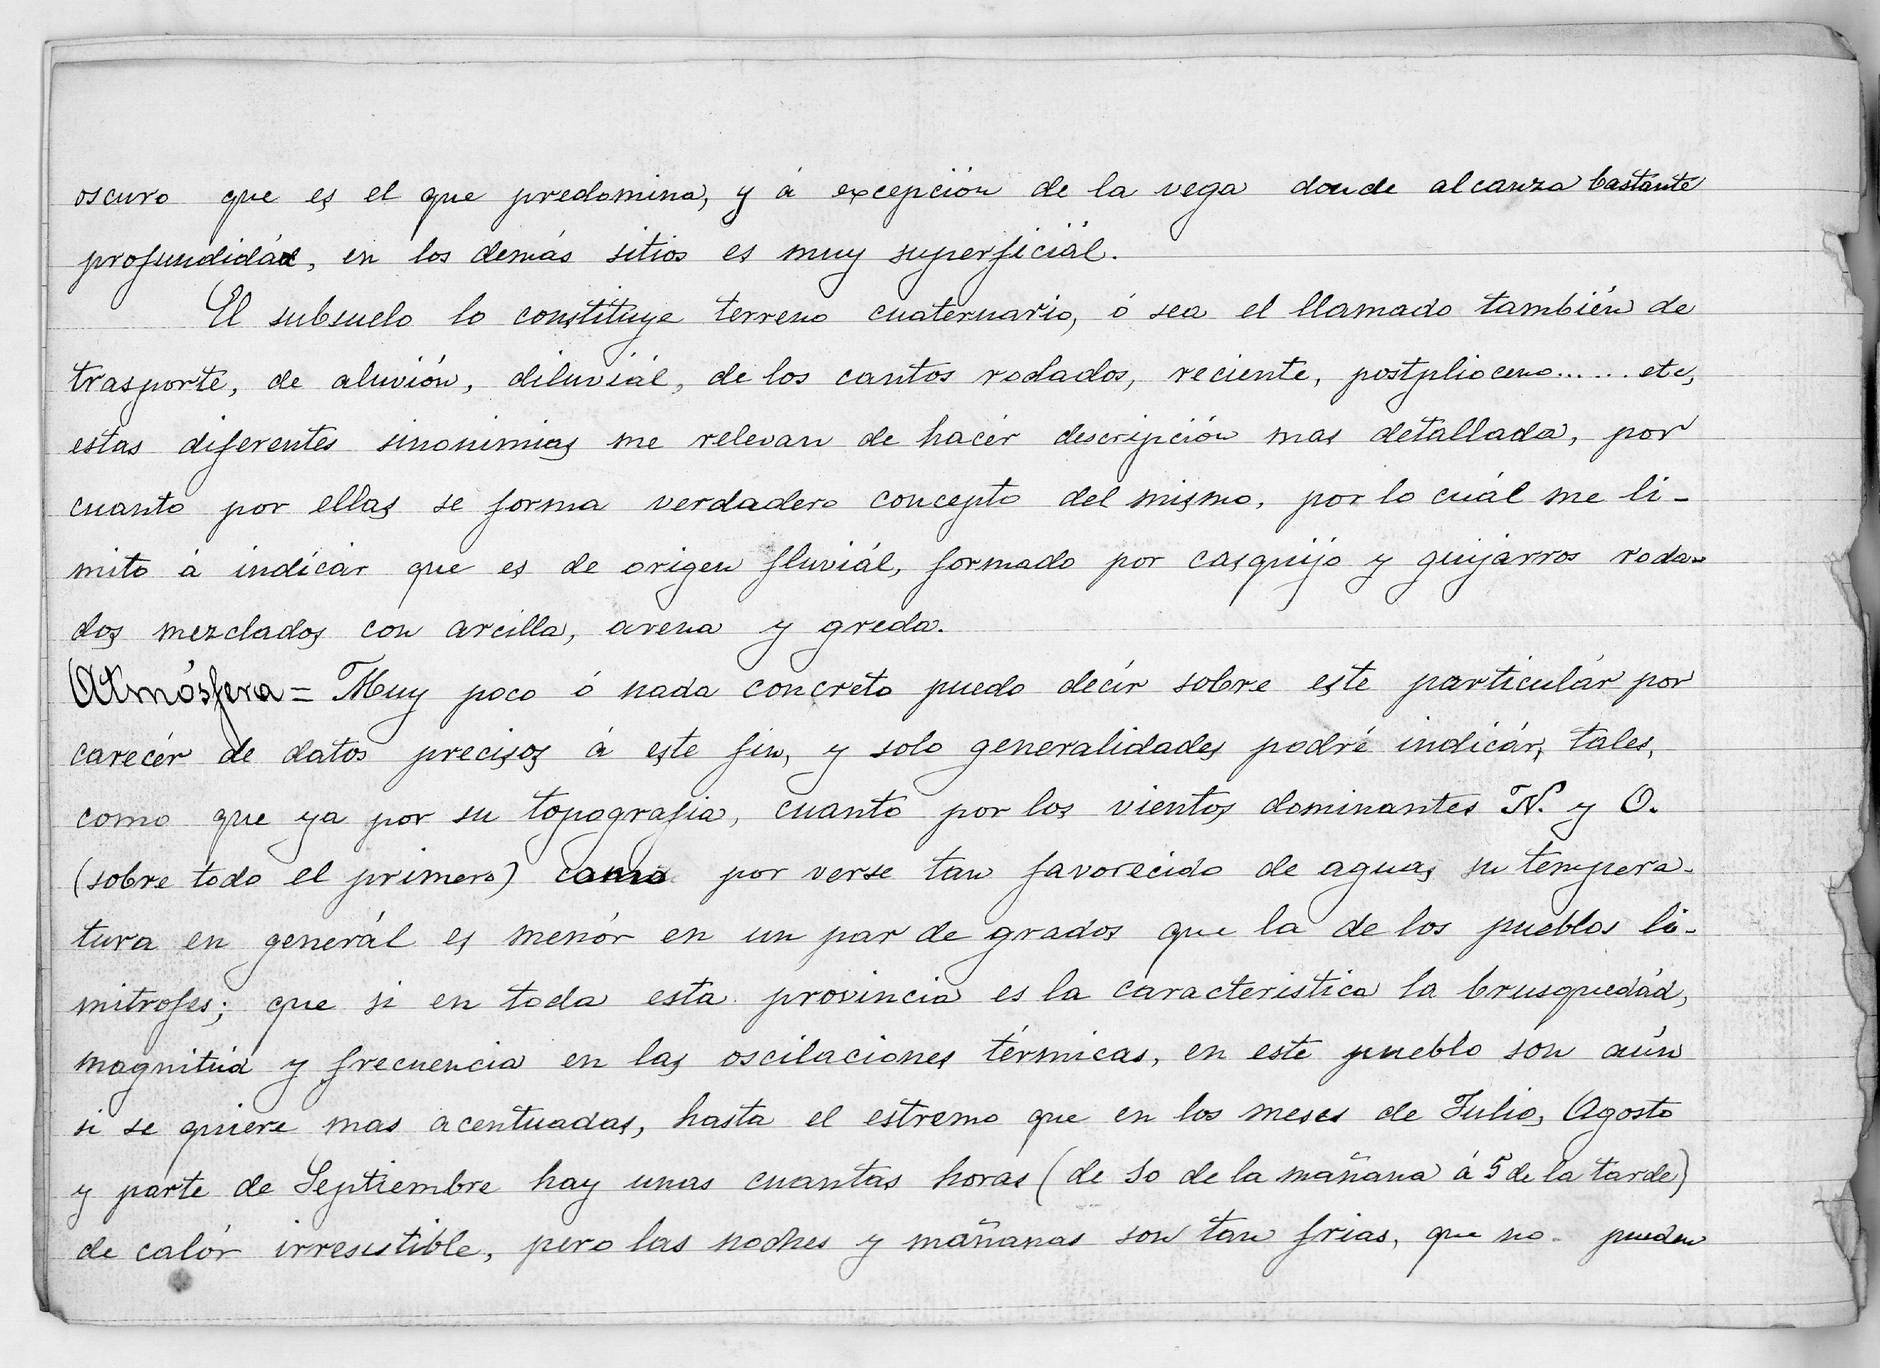 oscuro que es el que predomina, y á excepción de la vega donde alcanza bastante
profundidád, en los demás sitios es muy superficiál.
El subsuelo lo constituye terreno cuaternario, ó sea el llamado también de
trasporte, de aluvión, diluviál, de los cantos rodados, reciente, postplioceno...... etc,
estas diferentes sinonimias me relevan de hacér descripción mas detallada, por
cuanto por ellas se forma verdadero concepto del mismo, por lo cuál me li-
mito á indicár que es de origen fluviál, formado por casquijo y guijarros roda-
dos mezclados con arcilla, arena y greda.
Atmósfera = Muy poco ó nada concreto puedo decír sobre este particulár por
carecér de datos precisos á este fin, y solo generalidades podré indicár, tales,
como que ya por su topografia, cuanto por los vientos dominantes N. y O.
(sobre todo el primero) como por verse tan favorecido de aguas su tempera-
tura en generál es menór en un par de grados que la de los pueblos li-
mitrofes; que si en toda esta provincia es la caracteristica la brusquedád,
magnitúd y frecuencia en las oscilaciones térmicas, en este pueblo són aún
si se quiere mas acentuadas, hasta el estremo que en los meses de Julio, Agosto
y parte de Septiembre hay unas cuantas horas (de 10 de la mañana á 5 de la tarde)
de calór irresistible, pero las noches y mañanas son tan frias, que no pueden